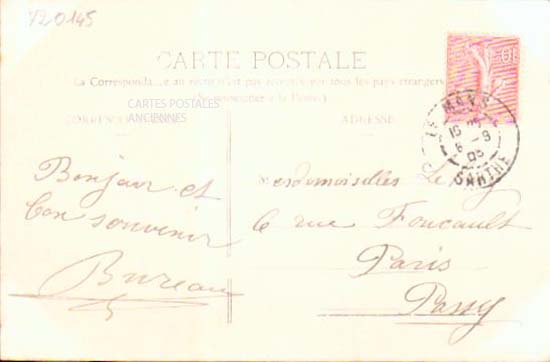 720145
CARTE POSTALE
La Correspondance au recto n'est pas acceptée par tous les pays étrangers
(Se renseigner à la Poste)
CARTES POSTALES
ANCIENNES
CORRESPONDANCE
ADRESSE
10
LE MANS
15
6 - 9
05
SARTHE
Bonjour et
bon souvenir
Bureau
Mesdemoiselles Le
6 rue Foucault
Paris
Passy